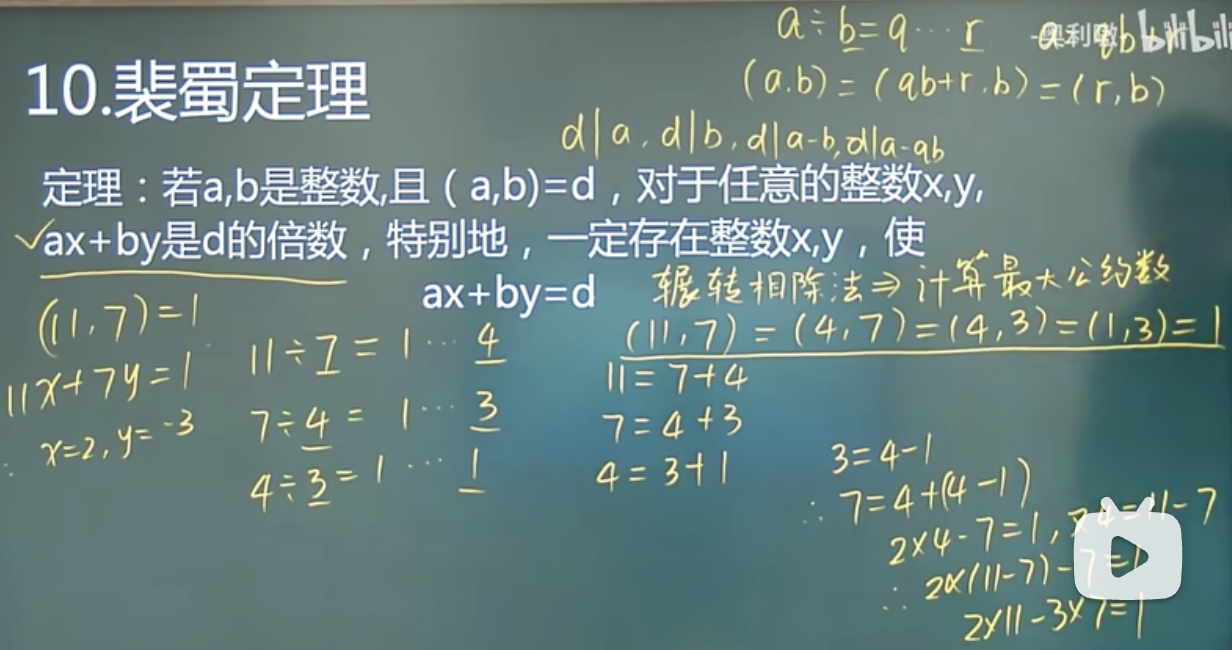 a÷b=q…r a qb+r
-奥利 bilibili
10.裴蜀定理
(a.b)=(qb+r.b)=(r,b)
d|a,d|b,d|a-b,d|a-qb
定理：若a,b是整数,且（a,b)=d，对于任意的整数x,y,
✓ax+by是d的倍数，特别地，一定存在整数x,y，使
ax+by=d
辗转相除法⇒计算最大公约数
(11,7)=1
11x+7y=1
x=2,y=-3
11÷7=1…4
7÷4=1…3
4÷3=1…1
(11,7)=(4,7)=(4,3)=(1,3)=1
11=7+4
7=4+3
4=3+1
3=4-1
∴7=4+(4-1)
2×4-7=1,又4=11-7
∴2×(11-7)-7=1
2×11-3×7=1